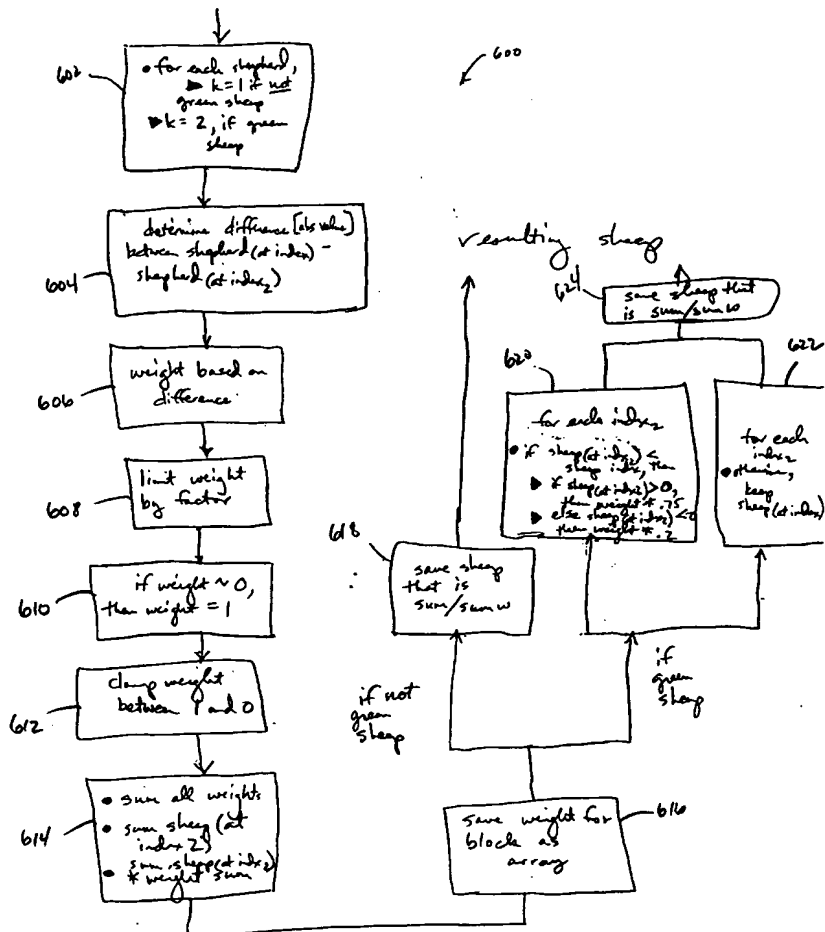 600
602
• for each shepherd,
▶ k=1 if not
green sheep
▶ k=2, if green
sheep
604
determine difference [abs value]
between shepherd (at index) -
shepherd (at index2)
606
weight based on
difference
608
limit weight
by factor
610
if weight ~ 0,
than weight = 1
612
clamp weight
between 1 and 0
614
• sum all weights
• sum sheep (at
index 2)
• sum sheep (at indx2)
* weight sum
616
save weight for
block as
array
if not
green
sheep
if
green
sheep
618
save sheep
that is
sum/sumw
620
for each indx2
• if sheep (at indx2) <
sheep indx, then
▶ if sheep (at indx2) > 0,
then weight * .75
▶ else sheep (at indx2) <0
then weight * .2
622
for each
indx2
• otherwise,
keep
sheep (at index)
624
save sheep that
is sum/sumw
resulting sheep